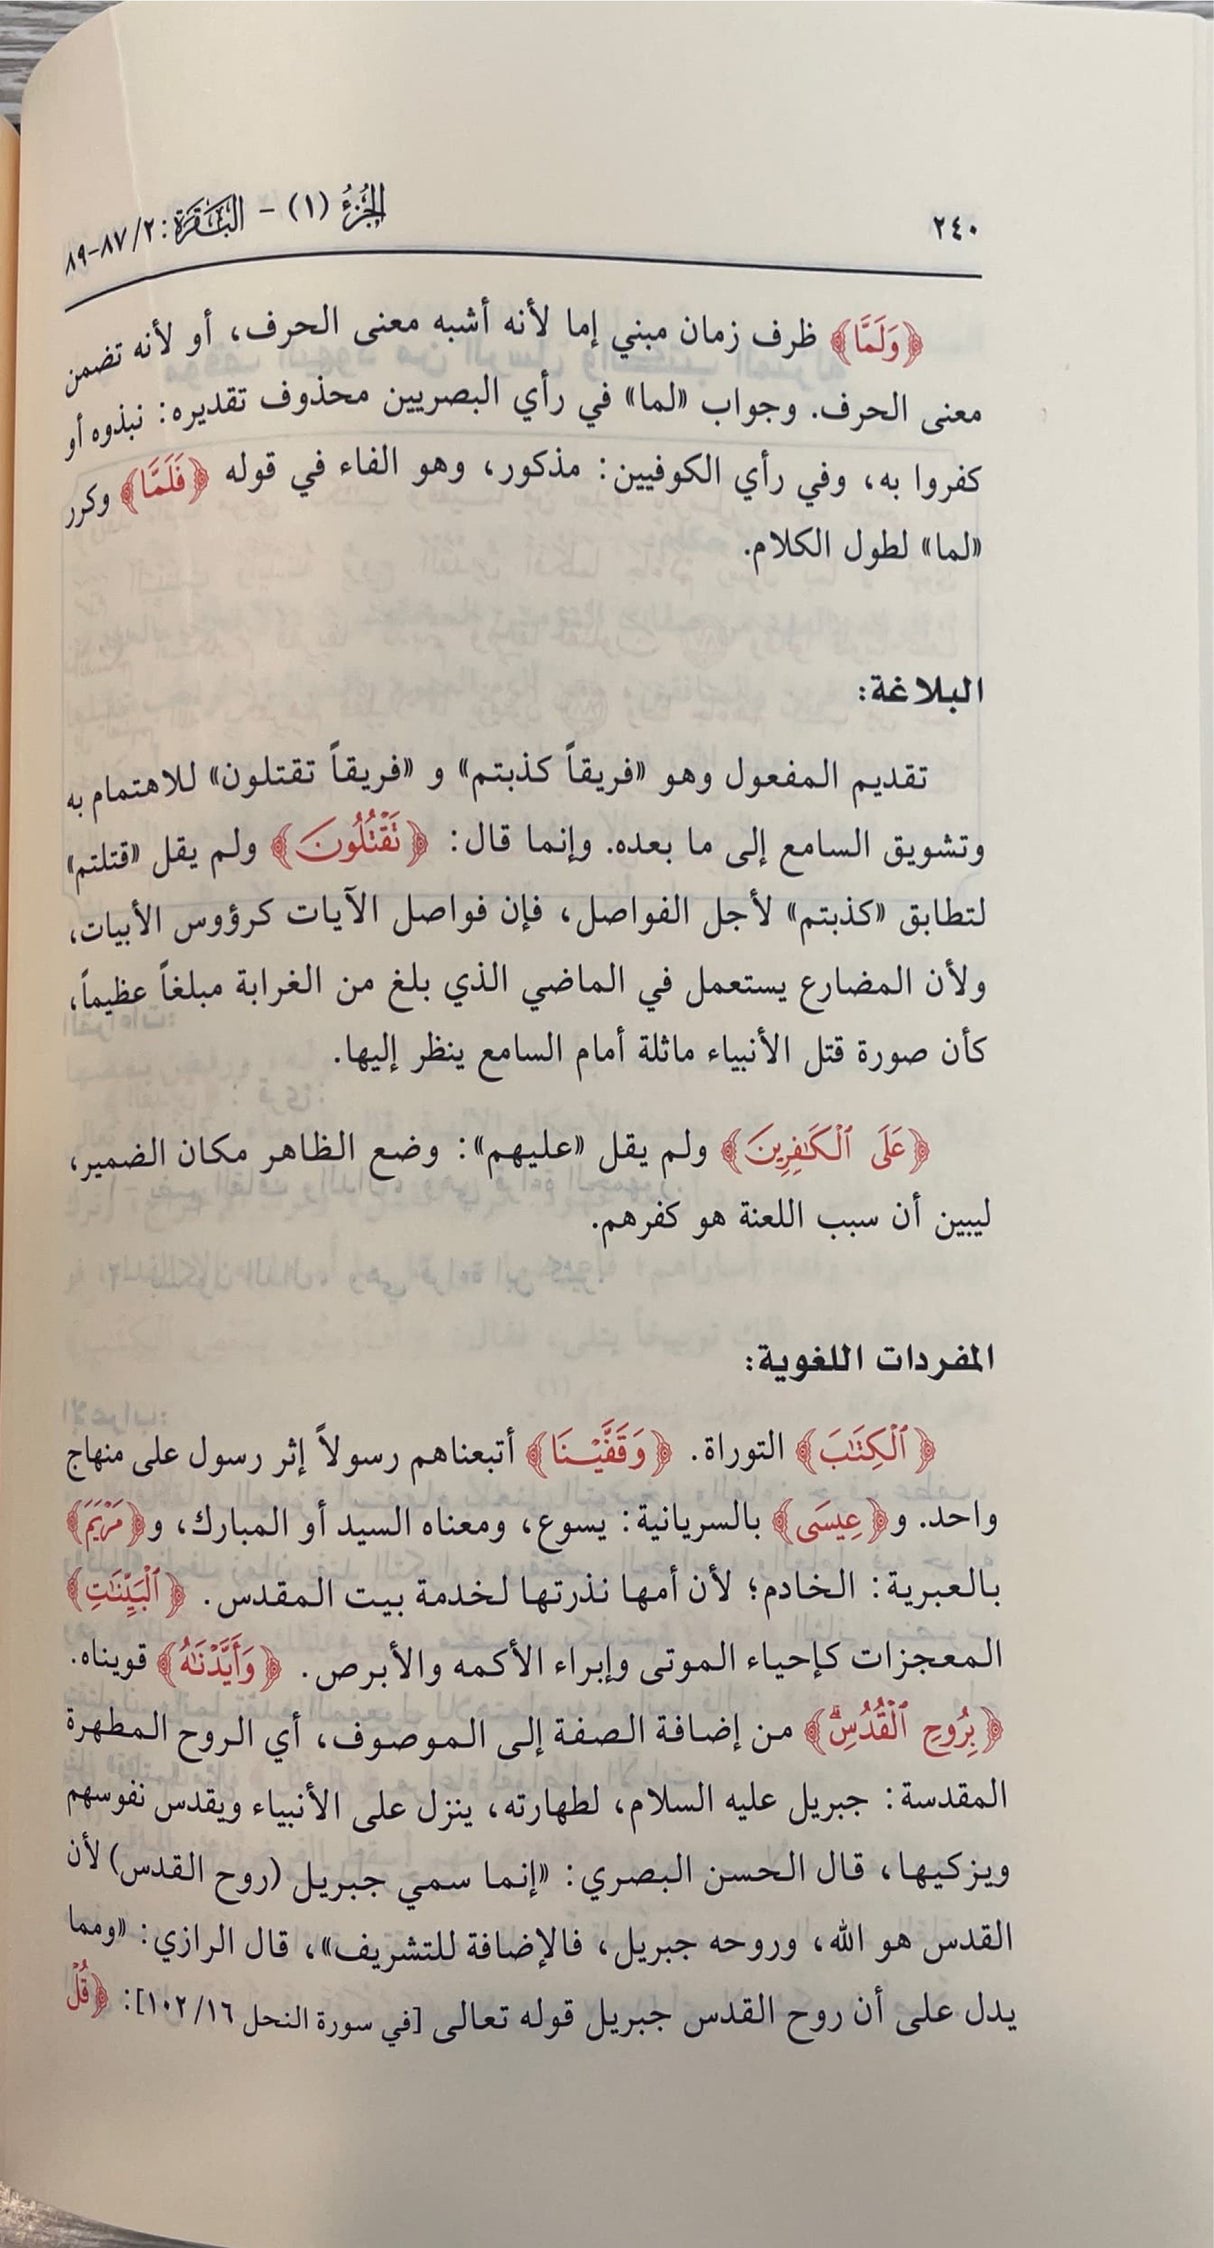 ٢٤٠ الجزء (١) - البقرة: ٢/ ٨٧-٨٩
﴿وَلَمَّا﴾ ظرف زمان مبني إما لأنه أشبه معنى الحرف، أو لأنه تضمن
معنى الحرف. وجواب «لما» في رأي البصريين محذوف تقديره: نبذوه أو
كفروا به، وفي رأي الكوفيين: مذكور، وهو الفاء في قوله ﴿فَلَمَّا﴾ وكرر
«لما» لطول الكلام.
البلاغة:
تقديم المفعول وهو «فريقاً كذبتم» و «فريقاً تقتلون» للاهتمام به
وتشويق السامع إلى ما بعده. وإنما قال: ﴿تَقْتُلُونَ﴾ ولم يقل «قتلتم»
لتطابق «كذبتم» لأجل الفواصل، فإن فواصل الآيات كرؤوس الأبيات،
ولأن المضارع يستعمل في الماضي الذي بلغ من الغرابة مبلغاً عظيماً،
كأن صورة قتل الأنبياء ماثلة أمام السامع ينظر إليها.
﴿عَلَى ٱلْكَـٰفِرِينَ﴾ ولم يقل «عليهم»: وضع الظاهر مكان الضمير،
ليبين أن سبب اللعنة هو كفرهم.
المفردات اللغوية:
﴿ٱلْكِتَـٰبَ﴾ التوراة. ﴿وَقَفَّيْـنَا﴾ أتبعناهم رسولاً إثر رسول على منهاج
واحد. و﴿عِيسَى﴾ بالسريانية: يسوع، ومعناه السيد أو المبارك، و﴿مَرْيَمَ﴾
بالعبرية: الخادم؛ لأن أمها نذرتها لخدمة بيت المقدس. ﴿ٱلْبَيِّنَـٰتِ﴾
المعجزات كإحياء الموتى وإبراء الأكمه والأبرص. ﴿وَأَيَّدْنَـٰهُ﴾ قويناه.
﴿بِرُوحِ ٱلْقُدُسِۗ﴾ من إضافة الصفة إلى الموصوف، أي الروح المطهرة
المقدسة: جبريل عليه السلام، لطهارته، ينزل على الأنبياء ويقدس نفوسهم
ويزكيها، قال الحسن البصري: «إنما سمي جبريل (روح القدس) لأن
القدس هو الله، وروحه جبريل، فالإضافة للتشريف»، قال الرازي: «ومما
يدل على أن روح القدس جبريل قوله تعالى [في سورة النحل ١٦/ ١٠٢]: ﴿قُلْ